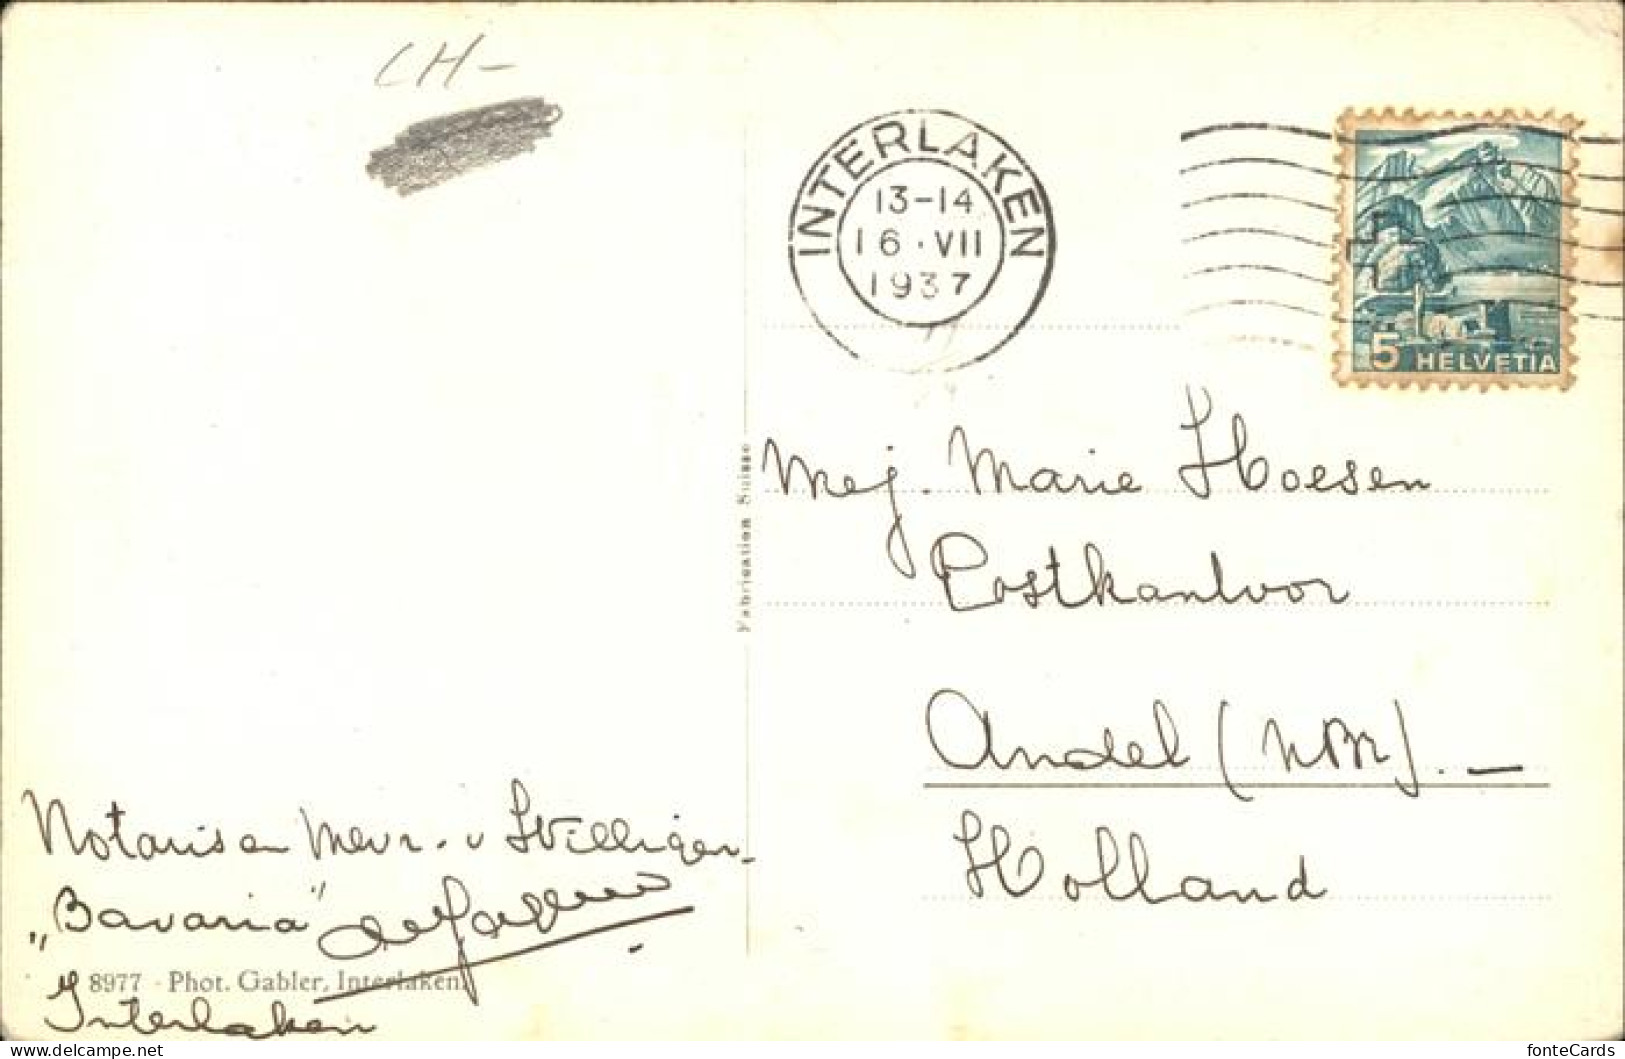 CH-
INTERLAKEN
13-14
16·VII
1937
5 HELVETIA
Fabrication Suisse
Mej. Marie Hoesen
Postkantoor
Andel (NBr). —
Holland
Notaris en Mevr. v Willigen-
"Bavaria"
8977 - Phot. Gabler, Interlaken.
Interlaken
delcampe.net
fonteCards